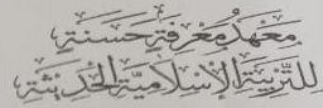 معهد معرفة حسنة
للتربية الإسلامية الحديثة